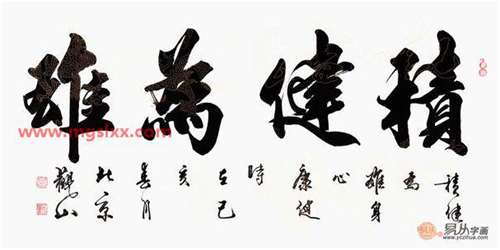 積健為雄
積健
為
雄身
心
康健
時
在己
亥
春月
北京
山
www.mgslxx.com
易从字画
www.yczihua.com